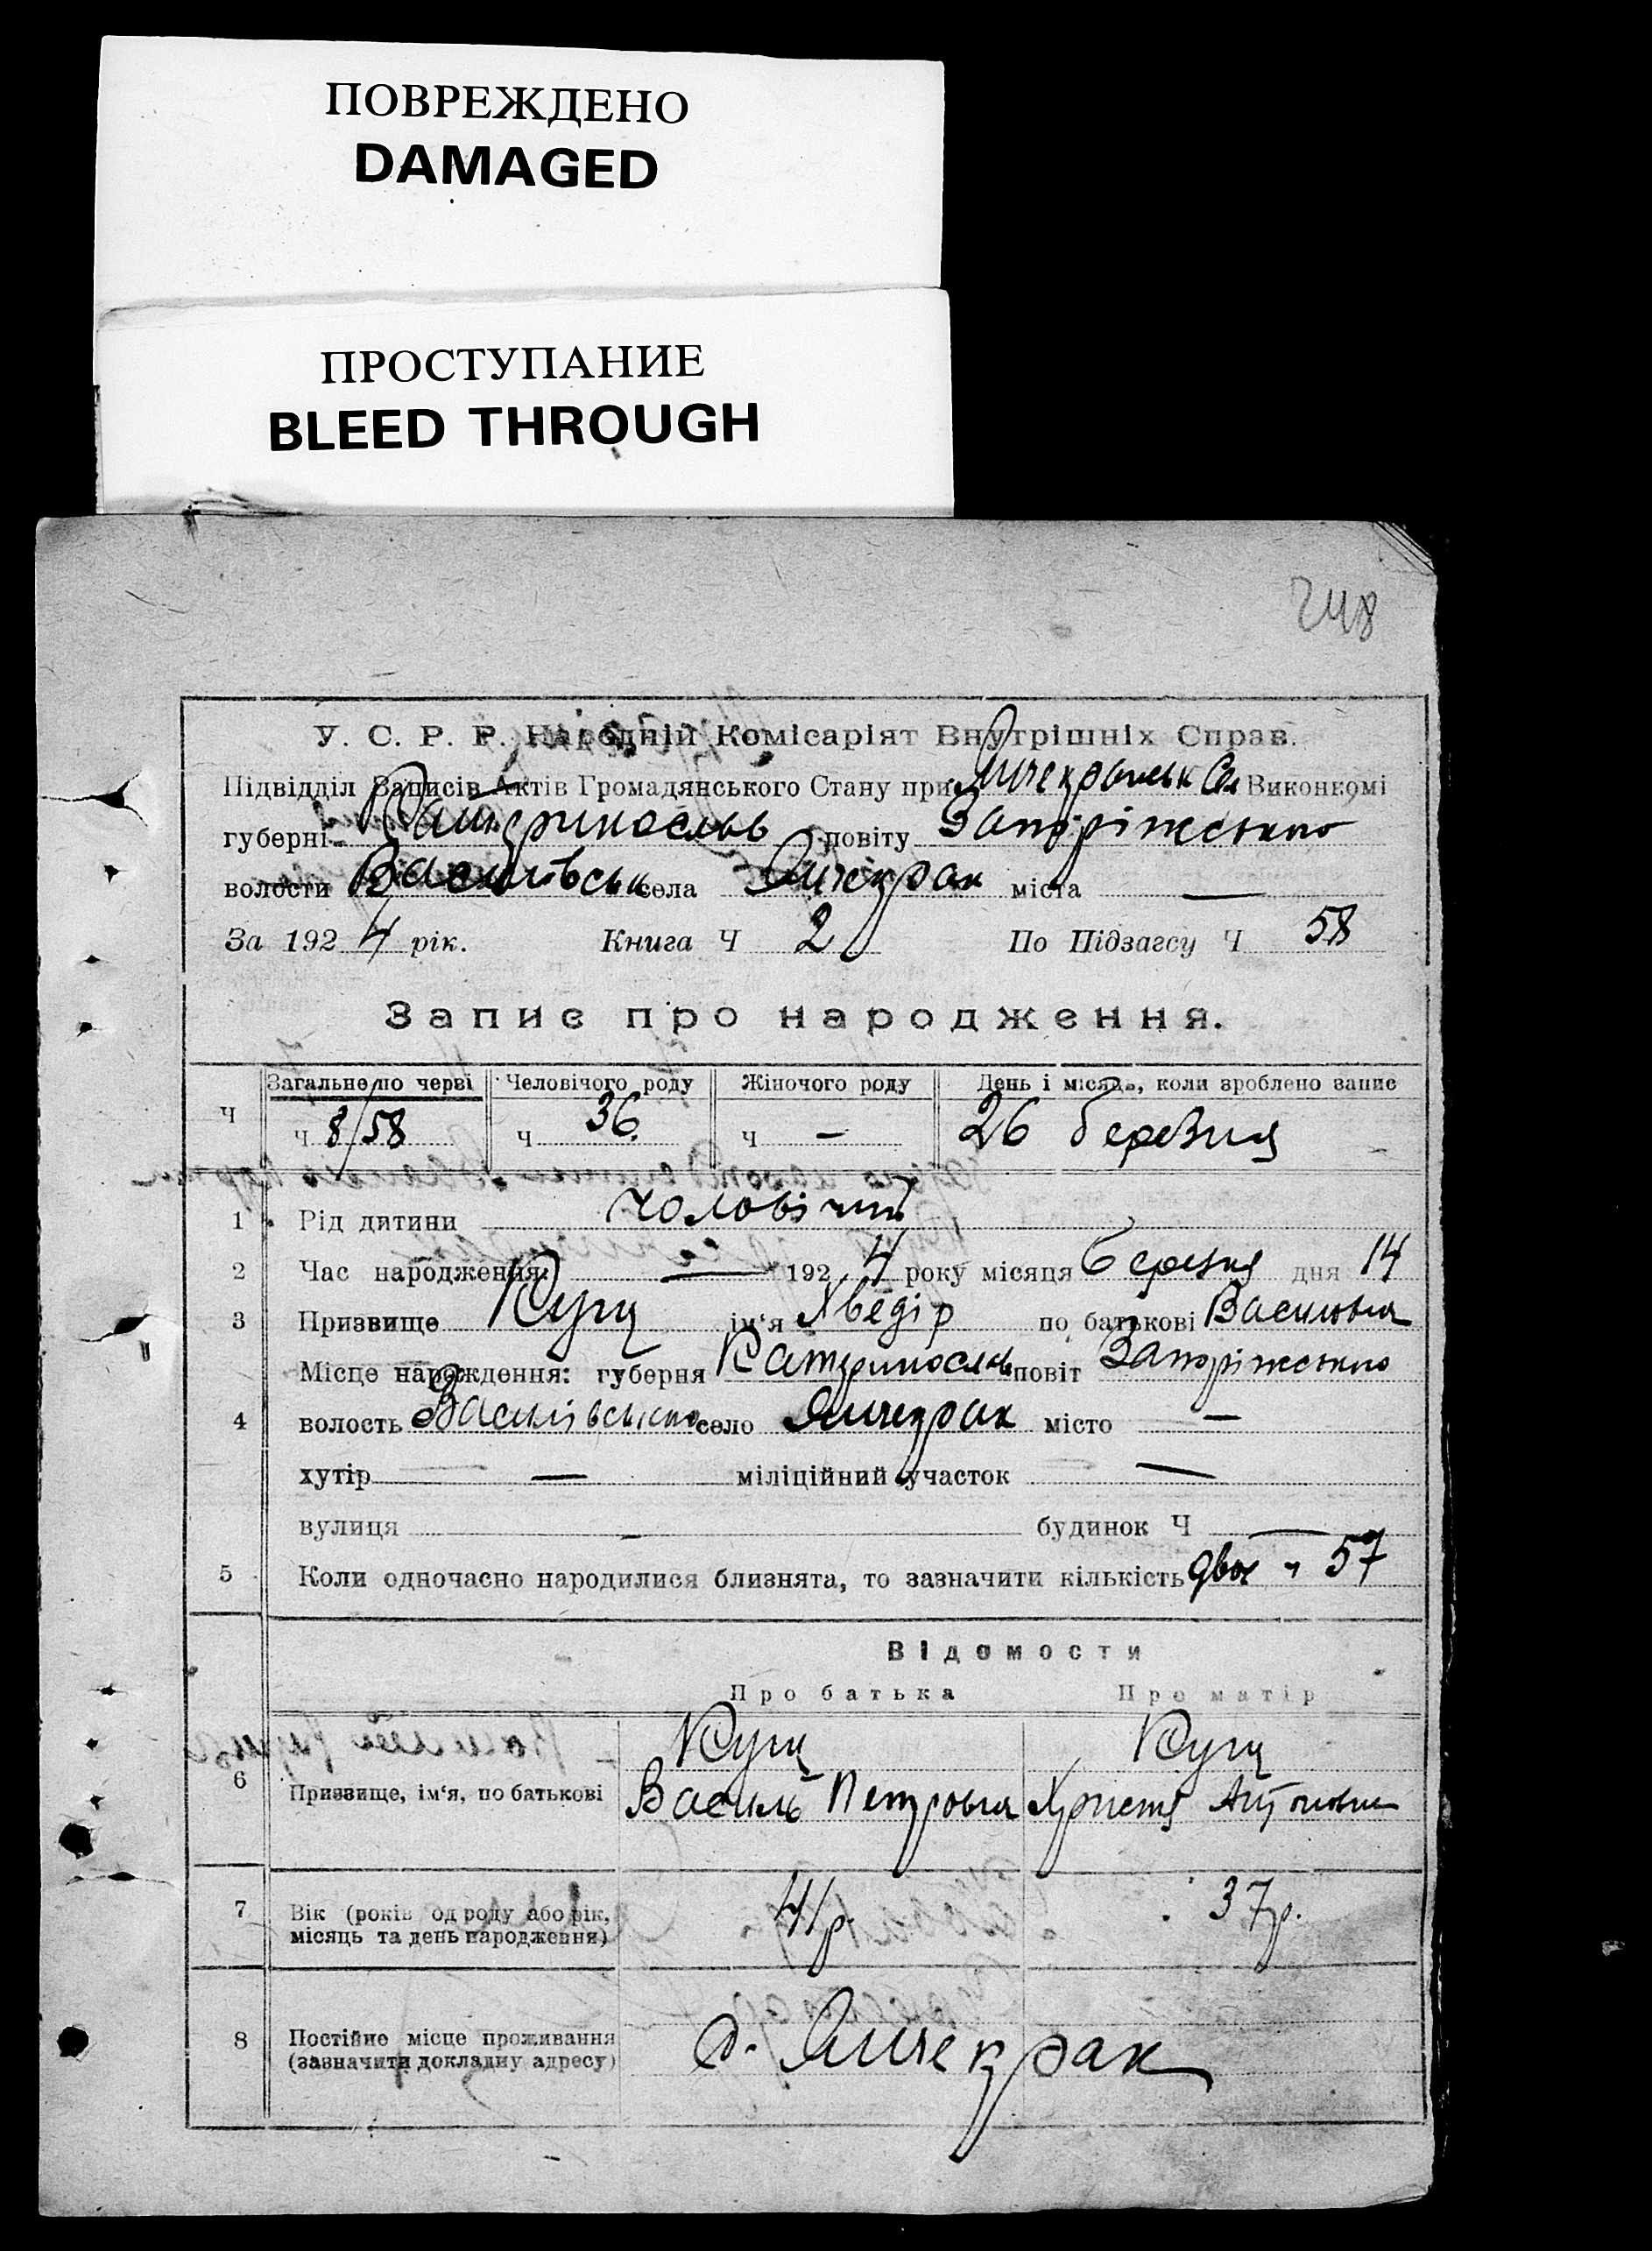 ПОВРЕЖДЕНО
DAMAGED
ПРОСТУПАНИЕ
BLEED THROUGH
248
У. С. Р. Р. Народній Комісаріят Внутрішніх Справ.
Підвідділ Записів Актів Громадянського Стану при Виконкомі
губерні повіту Запоріжського
волости Василівськ села Янчекрак міста —
За 1924 рік. Книга Ч 2 По Підзагсу Ч 58
Запис про народження.
Загальне по черві Человічого роду Жіночого роду День і місяць, коли зроблено запис
Ч ч 8/58 ч 36 ч — 26 березня
1 Рід дитини чоловічий
2 Час народження: — 1924 року місяця березня дня 14
3 Призвище Кущ ім‘я Хведір по батькові
Місце народження: губерня повіт Запоріжського
4 волость Василівською село Янчекрак місто —
хутір — міліційний участок —
вулиця — будинок Ч —
5 Коли одночасно народилися близнята, то зазначити кількість двое ч 57
Відомости
Про батька Про матір
Кущ Кущ
6 Призвище, ім‘я, по батькові Василь Петрович Христя
7 Вік (років од роду або рік, місяць та день народження) 41 р. 37 р.
8 Постійне місце проживання (зазначити докладну адресу) с. Янчекрак